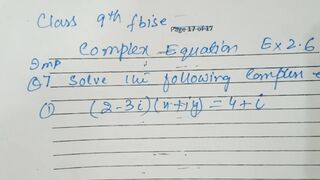 Class 9th fbise
Page 17 of 17
Complex Equation Ex 2.6
Imp
Q7 Solve the following complex e
① (2-3i)(x+iy) = 4+i